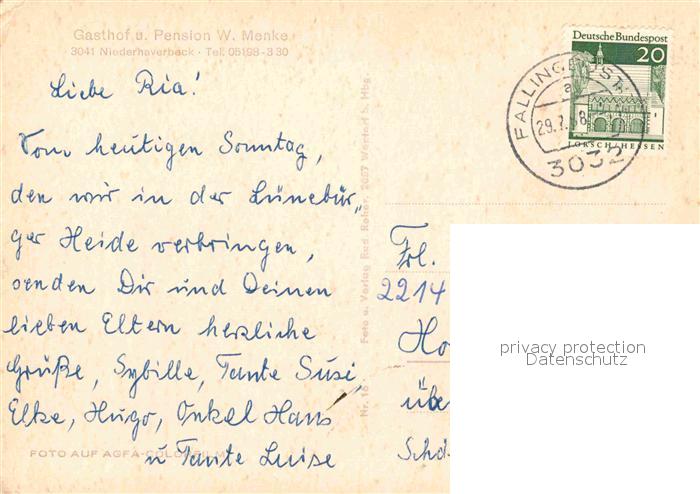 Gasthof u. Pension W. Menke
3041 Niederhaverbeck · Tel. 05198-330
Deutsche Bundespost
20
LORSCH/HESSEN
FALLINGBOSTEL
a
29.7.68
3032
Liebe Ria!
Vom heutigen Sonntag,
den wir in der Lünebür„
ger Heide verbringen,
senden Dir und Deinen
lieben Eltern herzliche
Grüße, Sybille, Tante Susi,
Elke, Hugo, Onkel Hans
u Tante Luise
FOTO AUF AGFA-COLOR
Foto u. Verlag Rud. Reher, 2057 Wentorf b. Hbg.
Frl.
2214
Ho
übe
Schö
privacy protection
Datenschutz